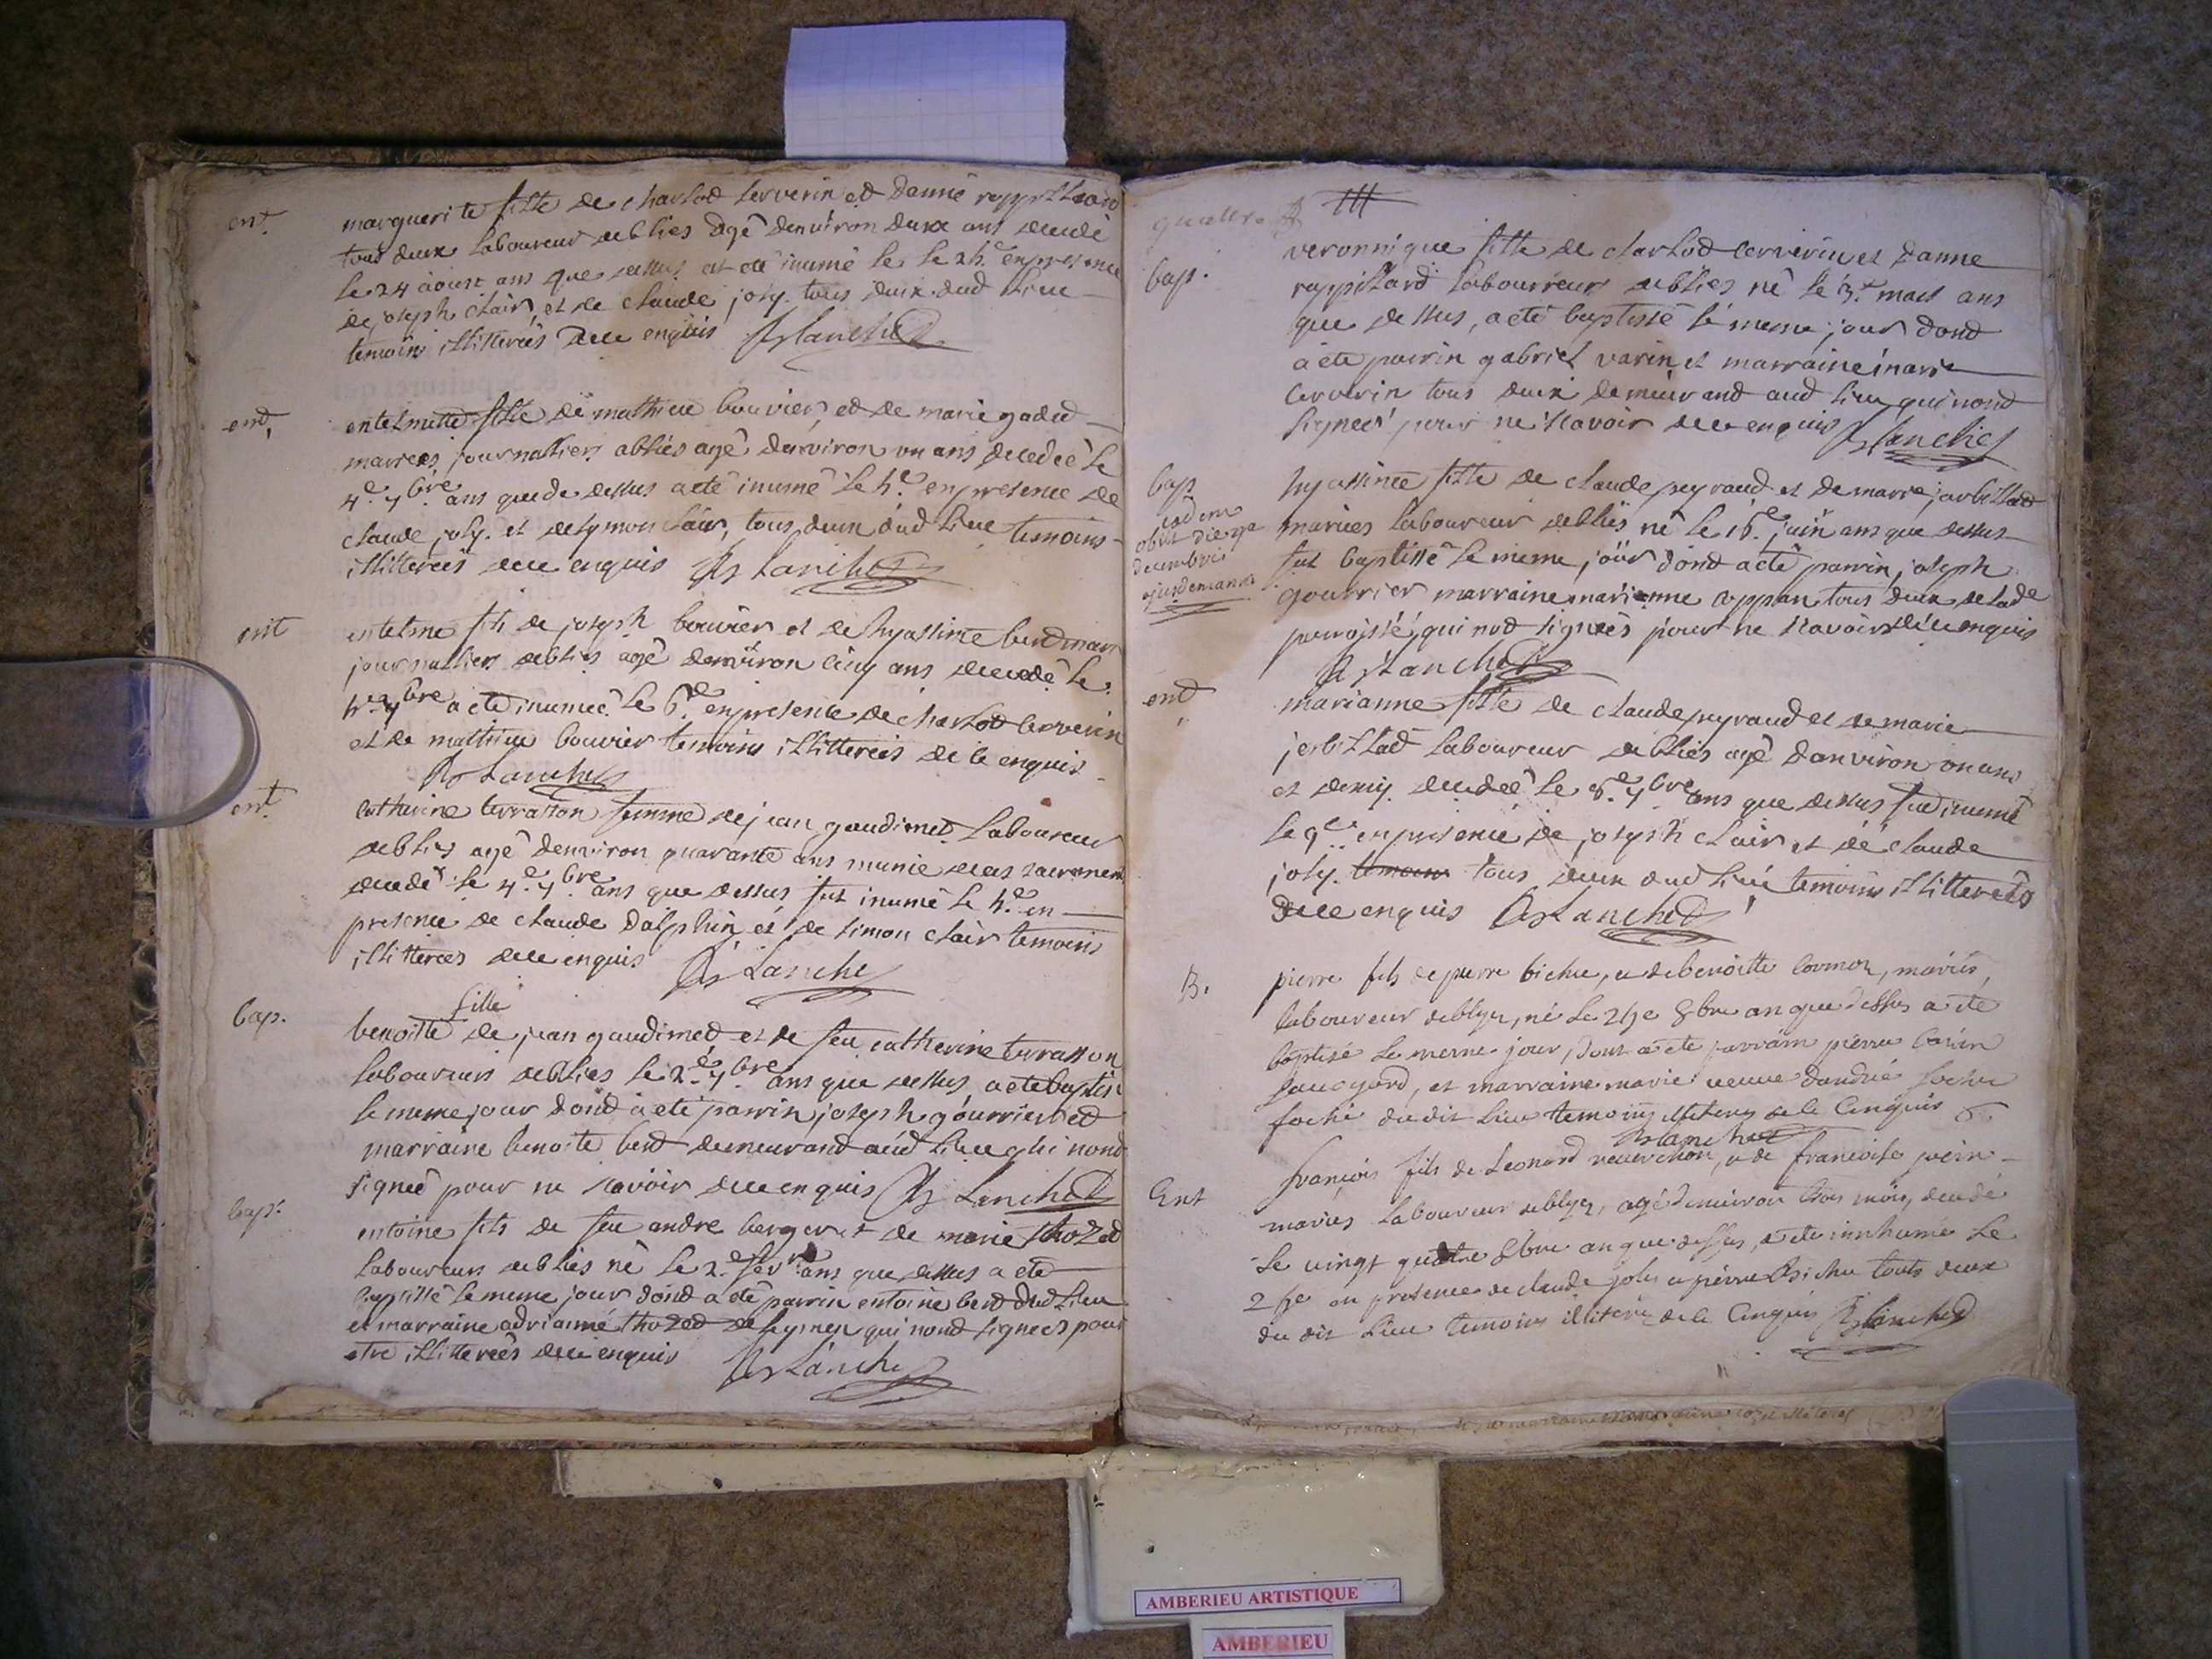 ent.
marguerite fille de charlod Cerverin et danne roppillard
tous deux Laboureur de blies agé denviron deux ans decedé
le 24 aoust ans que dessus at ete inumé le le 25.e en presence
de joseph clair, et de claude joly. tous deux dud lieu
temoins illitterés dece enquis Blanchet
ent,
entelmette fille de mathieu bouvier, et de marie gadud
mariees journalliers a blies agé denviron un ans decedeé le
4.e 7bre ans que de dessus a eté inumé le 5.e en presence de
claude joly. et de symon clair, tous deux dud lieu temoins
illitterees dece enquis Blanchet
ent
entelme fils de joseph bouvier et de hyassinte
journallier de blies agé denviron cinq ans decedé le
5.e 7bre a eté inumeé le 6.e en presence de charlod Cerverin
et de mathieu bouvier temoins illitterees de ce enquis
Blanchet
ent.
Catherine terrasson femme de jean gaudimet Laboureur
de blies agé denviron quarante ans munie de
decedé le 4.e 7bre ans que dessus fut inumé le 5.e en
presence de claude dalphin et de simon clair temoins
illitterees dece enquis Blanchet
bap.
fille
benoitte de jean gaudimed, et de feu catherine terrasson
laboureurs de blies le 2.e 7bre ans que dessus a eté baptisé
le meme jour dond a eté parrin joseph gourrier et
marraine benoite berd demeurand aud lieu qui nond
signeé pour ne scavoir dece enquis Blanchet
bap.
entoine fils de feu andre berger et de marie thozed
Laboureurs de blies né le 2.e ans que dessus a eté
baptissé le meme jour dond a eté parrin entoine berd dud lieu
et marraine adrianne thozed de leyment qui nond signees pour
etre illitterees dece enquis Blanchet
quattre
bap.
veronnique fille de charlod Cerverin et danne
roppillard Labourreurs de blies né le 3.e mars ans
que dessus, a eté baptissé le meme jour dond
a eté parrin gabriel varin et marraine marie
Cerverin tous deux demeurand aud lieu qui nond
signees pour ne scavoir dece enquis Blanchet
bap
eadem
obiit die 9a
decembris
ejusdem anni
hyassinte fille de claude peyraud et de marie jarbillad
mariees Laboureur de blies né le 16.e juin ans que dessus
fut baptissé le meme jour dond a eté parrin joseph
gourrier marraine marianne coppan tous deux de lade
parroisse, qui nod signees pour ne scavoir dece enquis
Blanchet
ent
marianne fille de claude peyraud et de marie
jerbillad laboureur de blies agé danviron un ans
et demy. decedeé le 8.e 7bre ans que dessus fud inumé
le 9.e en presence de joseph clair et de claude
joly. temoins tous deux dud lieu temoins illitterees
dece enquis Blanchet
B.
pierre fils de pierre bichu, et de benoitte Cormoz, mariés,
laboureur de blyes, né le 25e 8bre an que dessus a ete
baptisé le meme jour, dont a ete parrain pierre
et marraine marie veuve dandré
foché du dit lieu temoins illiteres de ce enquis
Blanchet
Ent
françois fils de Leonard neuerchon, et de françoise
mariés laboureur de blyes, agé denviron trois mois, decedé
le vingt quatre 8bre an que dessus, a ete innhumé le
25e en presence de claude joly et pierre Bichu touts deux
du dit lieu temoins illiteré de ce enquis Blanchet
AMBERIEU ARTISTIQUE
AMBERIEU